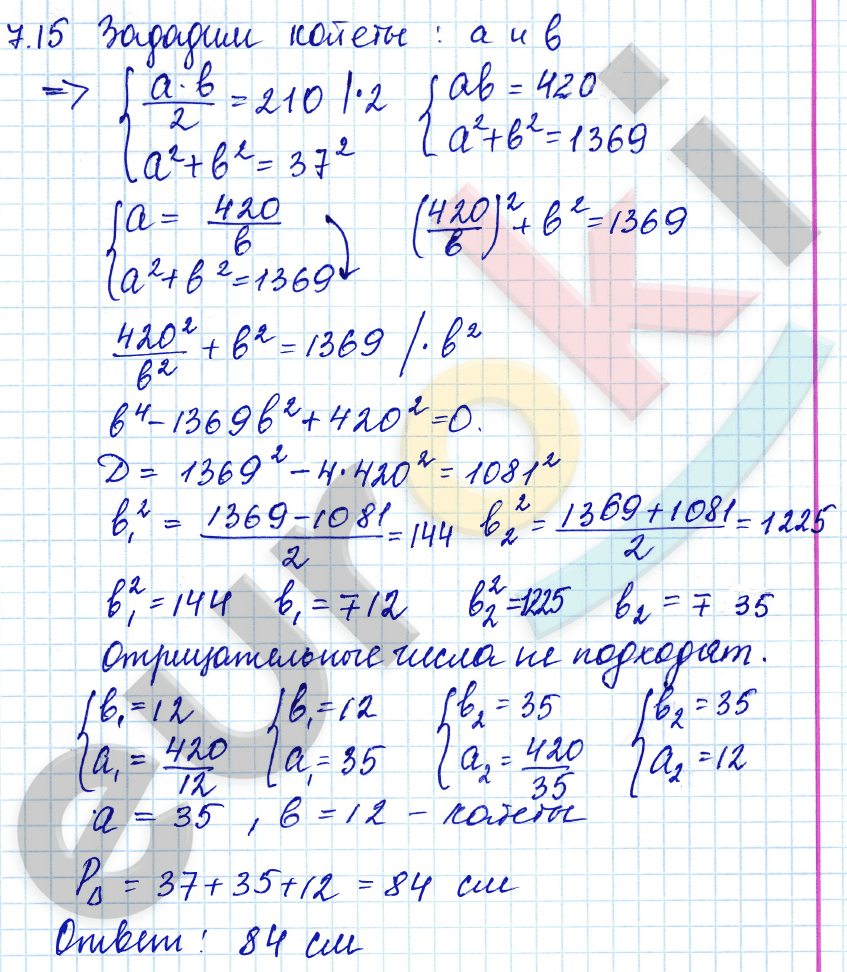 7.15 Зададим катеты: a и b
=> { a·b/2 = 210 |·2 { ab = 420
a² + b² = 37² a² + b² = 1369
{ a = 420/b (420/b)² + b² = 1369
a² + b² = 1369
420²/b² + b² = 1369 /·b²
b⁴ - 1369b² + 420² = 0.
D = 1369² - 4·420² = 1081²
b₁² = (1369-1081)/2 = 144 b₂² = (1369+1081)/2 = 1225
b₁² = 144 b₁ = 712 b₂² = 1225 b₂ = 7 35
Отрицательные числа не подходят.
{ b₁ = 12 { b₁ = 12 { b₂ = 35 { b₂ = 35
a₁ = 420/12 a₁ = 35 a₂ = 420/35 a₂ = 12
a = 35, b = 12 - катеты
P∆ = 37 + 35 + 12 = 84 см
Ответ: 84 см
euroki